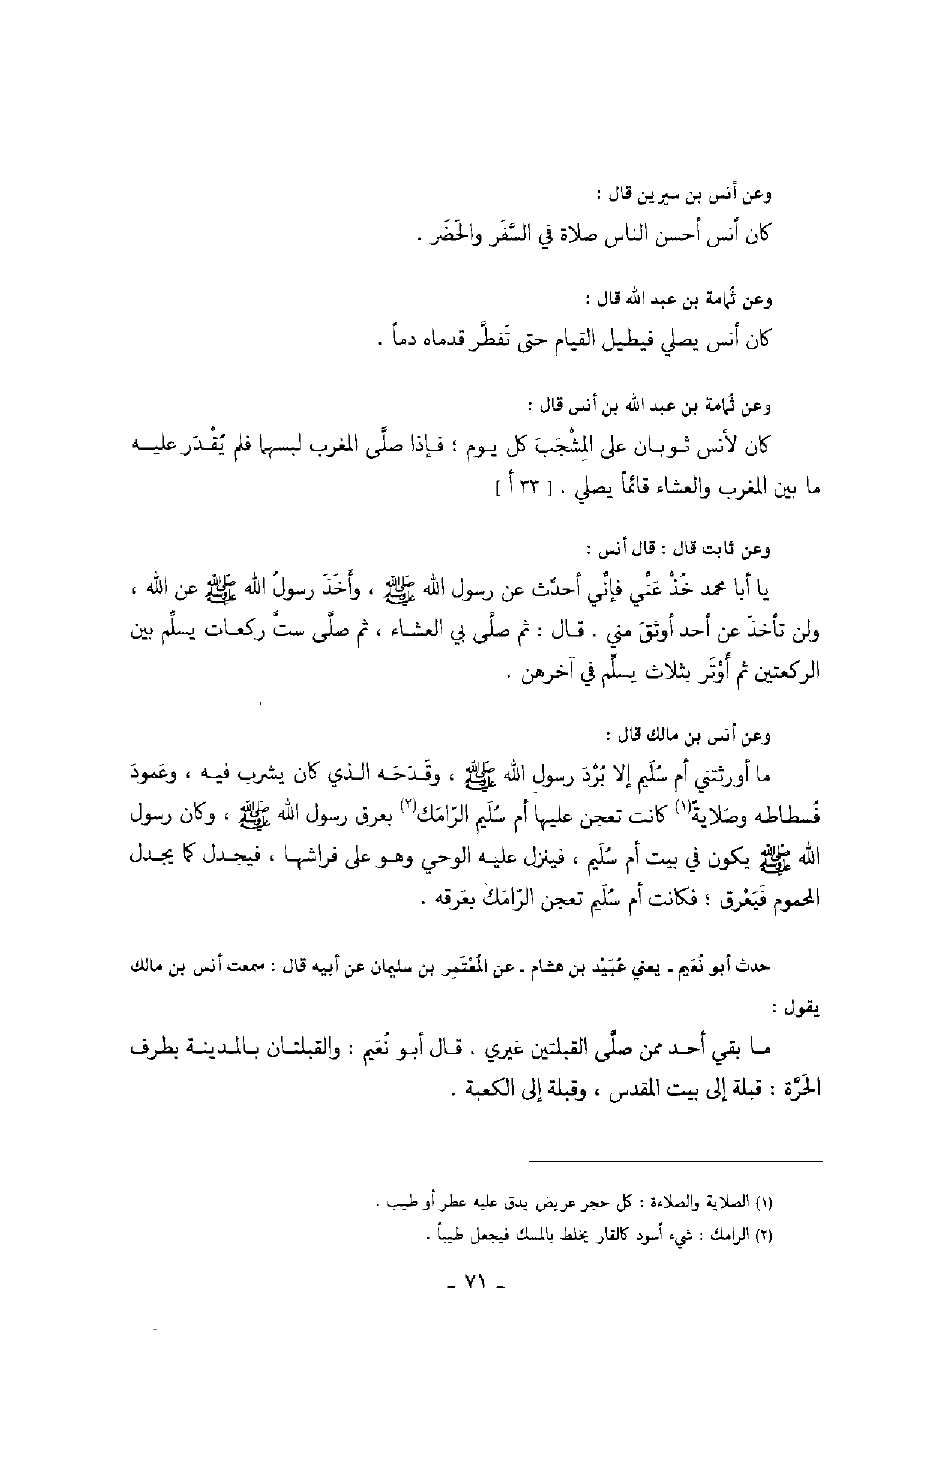 وعن أنس بن سيرين قال :
كان أنس أحسن الناس صلاة في السَّفَر والحَضَر .
وعن ثُمامة بن عبد الله قال :
كان أنس يصلي فيطيل القيام حتى تَفطَّر قدماه دماً .
وعن ثمامة بن عبد الله بن أنس قال :
كان لأنس ثوبان على المِشْجَبَ كل يوم ؛ فإذا صلَّى المغرب لبسها فلم يُقْدَر عليه
ما بين المغرب والعشاء قائماً يصلي . [ ٣٣ أ ]
وعن ثابت قال : قال أنس :
يا أبا محمد خُذْ عَنِّي فإنِّي أحدّث عن رسول الله ﷺ ، وأَخَذَ رسولُ الله ﷺ عن الله ،
ولن تأخذَ عن أحد أوثقَ مني . قال : ثم صلَّى بي العشاء ، ثم صلَّى ستَّ ركعات يسلِّم بين
الركعتين ثم أَوْتَر بثلاث يسلِّم في آخرهن .
وعن أنس بن مالك قال :
ما أورثتني أم سُلَيم إلا بُرْدَ رسول الله ﷺ ، وقَدَحَه الذي كان يشرب فيه ، وعَمودَ
فُسطاطه وصَلايةً(١) كانت تعجن عليها أم سُلَيم الرّامَك(٢) بعرق رسول الله ﷺ ، وكان رسول
الله ﷺ يكون في بيت أم سُلَيم ، فينزل عليه الوحي وهو على فراشها ، فيجدل كما يجدل
المحموم فَيَعْرق ؛ فكانت أم سُلَيم تعجن الرّامَكَ بعَرقه .
حدث أبو نُعَيم ـ يعني عُبَيْد بن هشام ـ عن المُعْتَمِر بن سليمان عن أبيه قال : سمعت أنس بن مالك
يقول :
ما بقي أحد ممن صلَّى القبلتين غيري . قال أبو نُعَيم : والقبلتان بالمدينة بطرف
الحَرَّة : قبلة إلى بيت المقدس ، وقبلة إلى الكعبة .
(١) الصلاية والصلاءة : كل حجر عريض يدق عليه عطر أو طيب .
(٢) الرامك : شيء أسود كالقار يخلط بالمسك فيجعل طيباً .
ـ ٧١ ـ